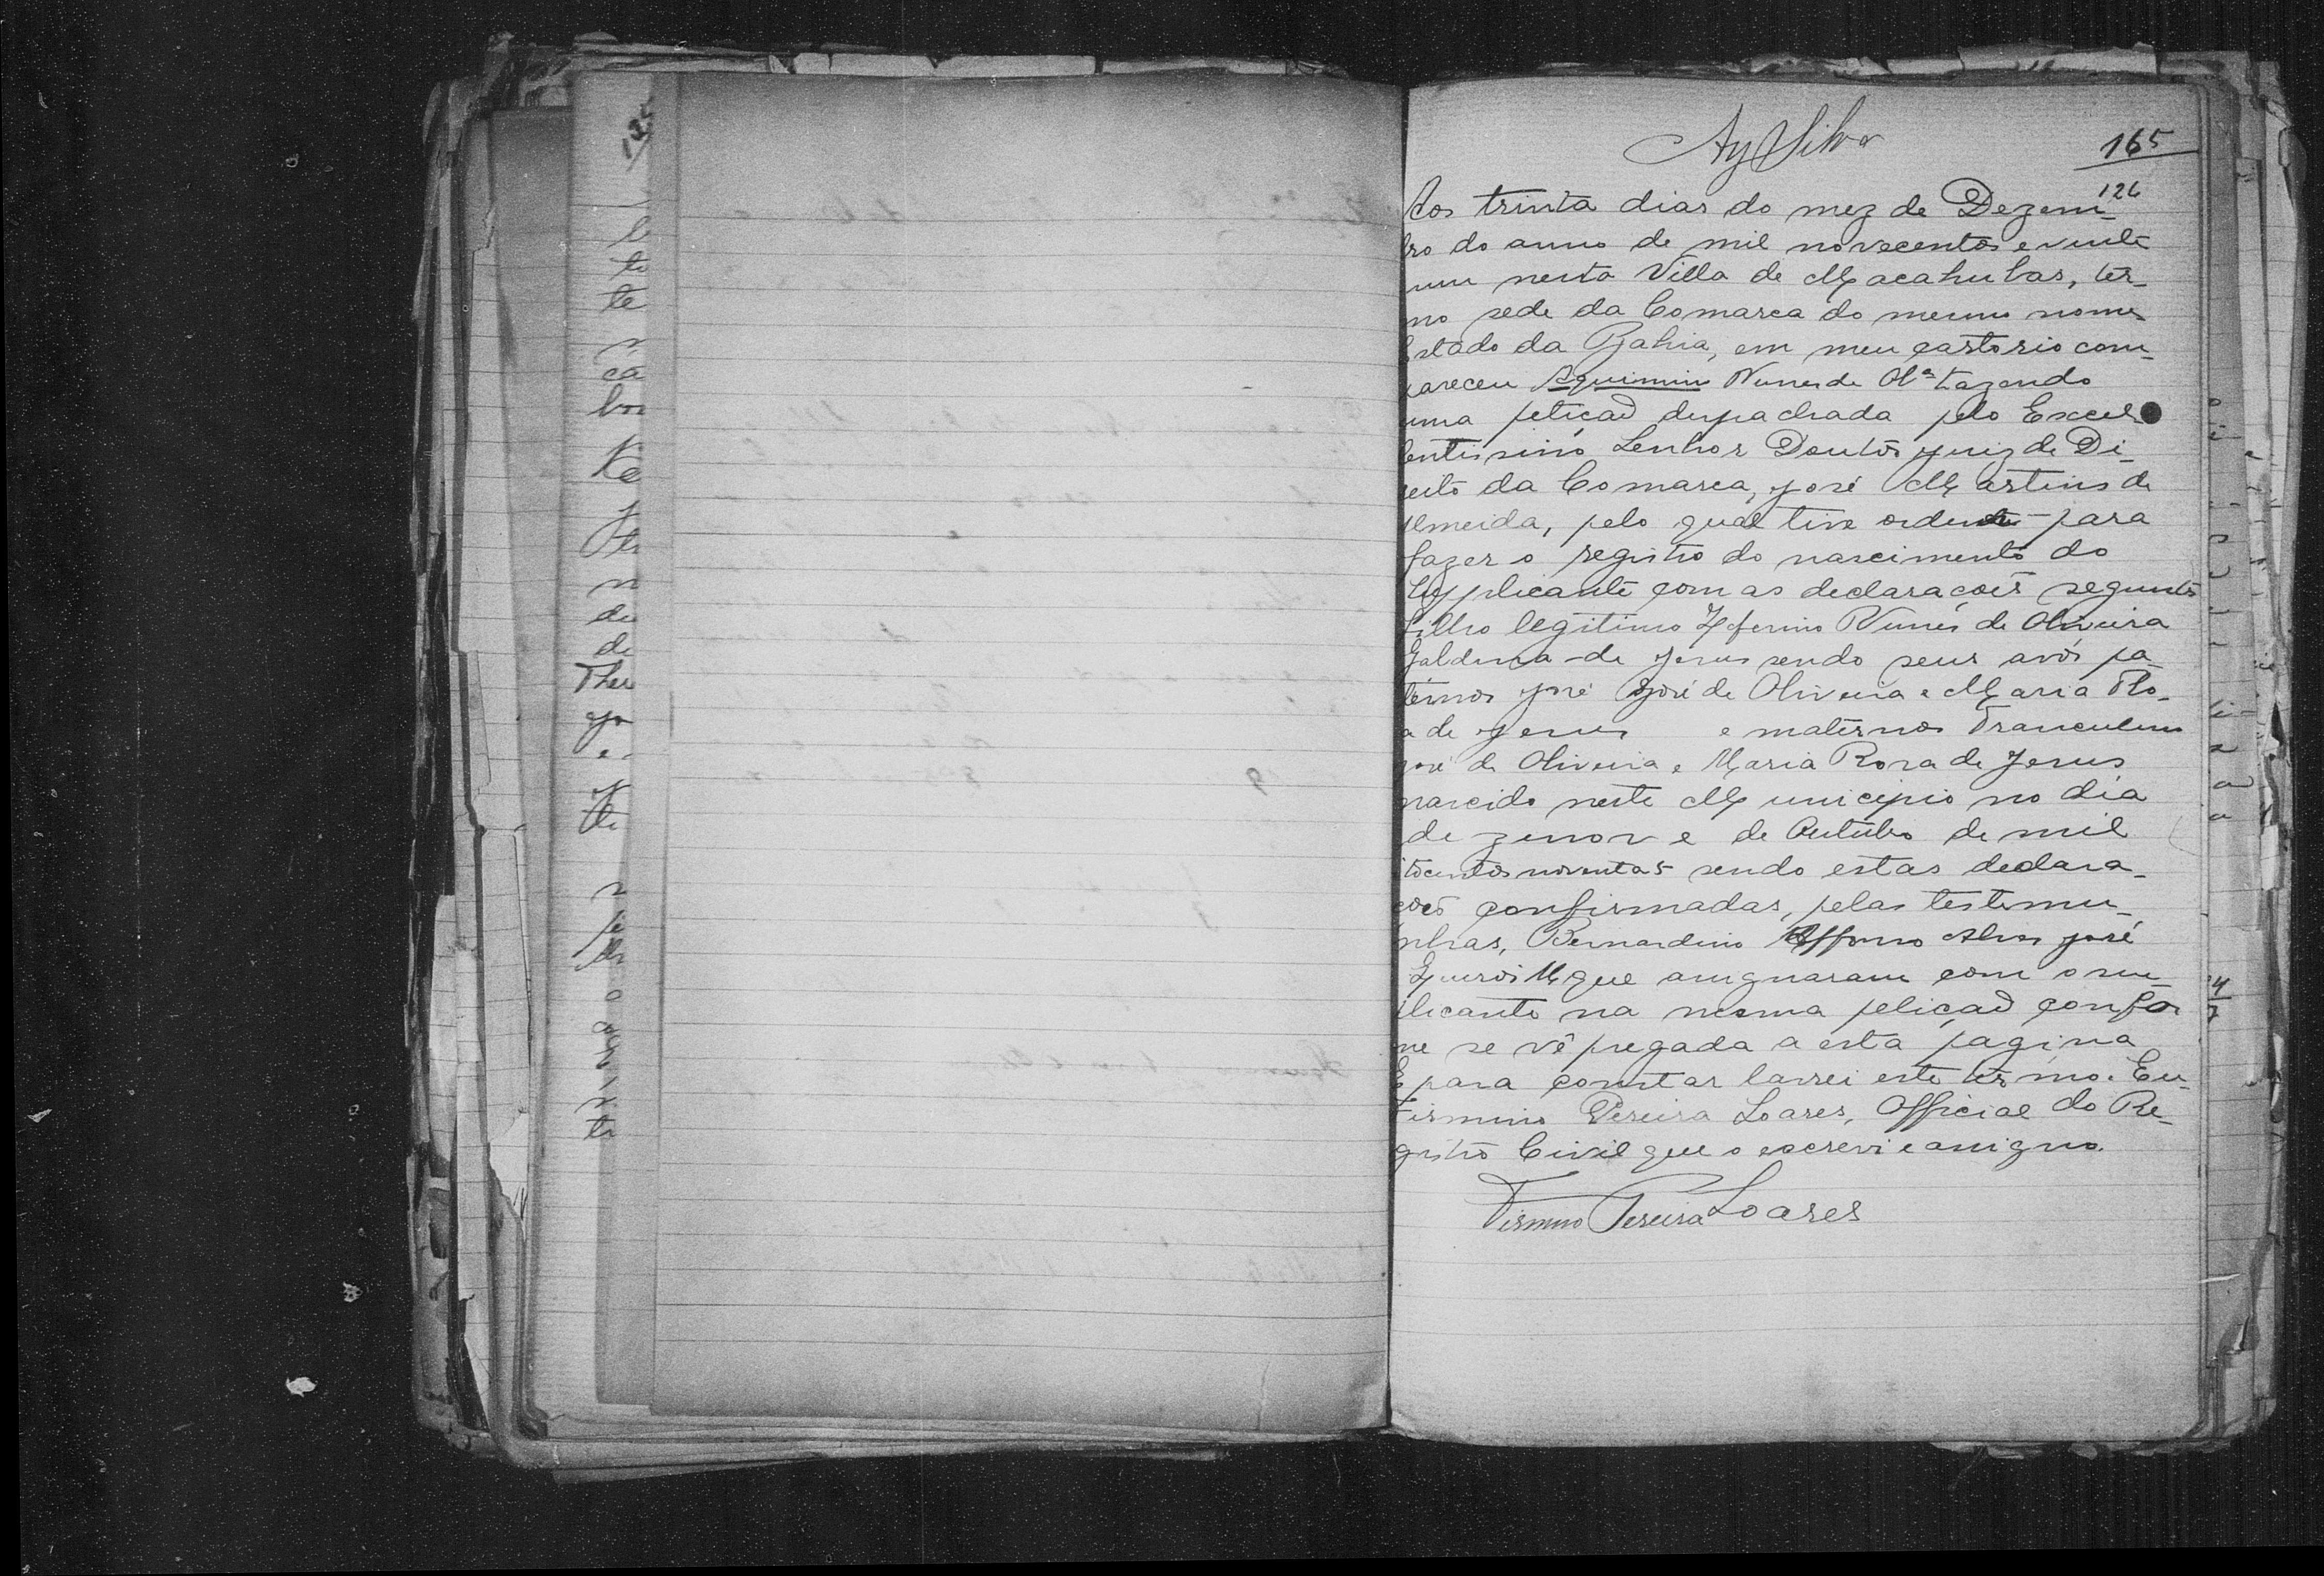 125
b
te
te
n
ca
bor
Ke
n
de
de
Ther
e
n
o
te
Ay Silva
165
126
Aos trinta dias do mez de Dezem-
bro do anno de mil novecentos e vinte
um nesta Villa de Macahubas, ter-
mo sede da Comarca do mesmo nome
Estado da Bahia, em meu cartorio com-
pareceu Aquimin Nunes de Olª trazendo
uma petição despachada pelo Excel
lentissimo Senhor Doutor Juiz de Di-
reito da Comarca, José Martins de
Almeida, pelo qual tive ordem para
fazer o registro do nascimento do
supplicante com as declarações seguintes
filho legitimo Zeferino Nunes de Oliveira
Galdina de Jesus sendo seus avós pa-
ternos José José de Oliveira e Maria Ro-
a de Jesus e maternos Franculino
José de Oliveira e Maria Rosa de Jesus
nascido neste Municipio no dia
dezenove de Outubro de mil
itocentos noventa 5 sendo estas declara-
ções confirmadas, pelas testemu-
nhas, Bernardino Affonso Alves José
que assignaram com o su-
plicante na mesma petição confor
me se vê pregada a esta pagina
E para constar lavrei este termo. Eu
Firmino Pereira Soares, Official do Re-
gistro Civil que o escrevi e assigno.
Firmino Pereira Soares